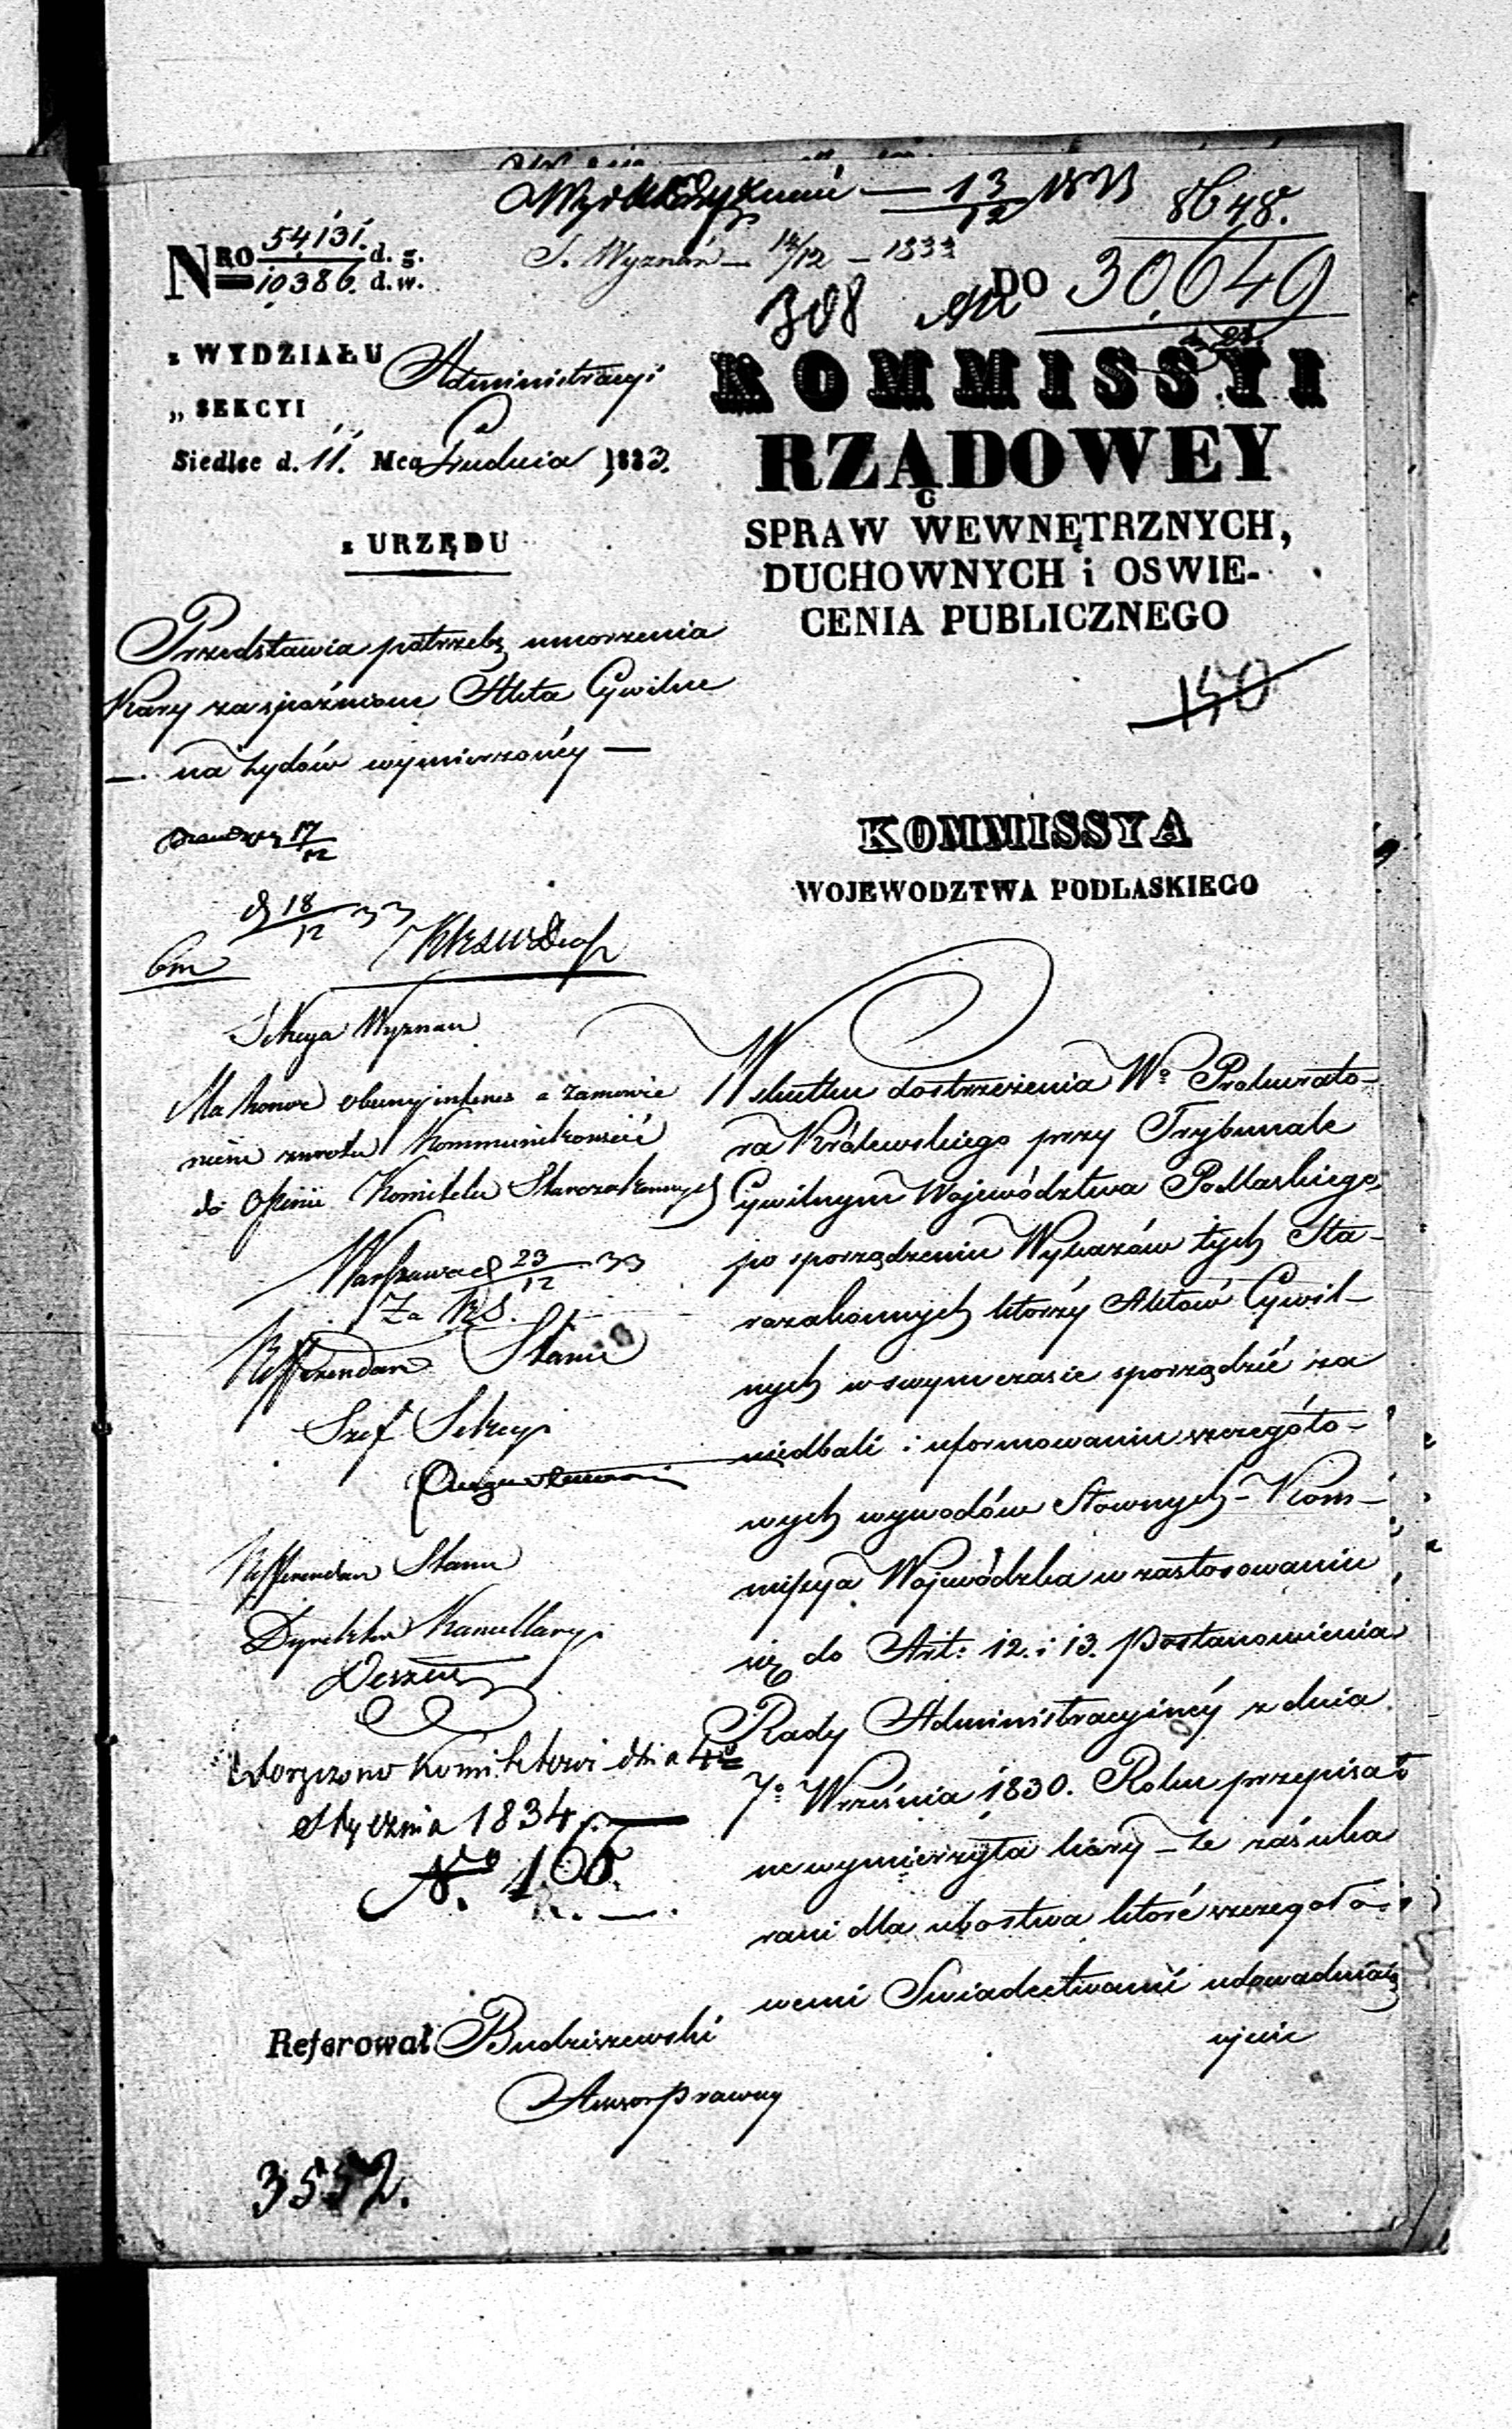 13/12 1833
8648.
NRO 54,131. d. g.
10,386. d. w.
S. Wyznań — 14/12 — 1833
DO 30,649
308
z WYDZIAŁU Administracyi
„ SEKCYI
Siedlce d. 11. Mca Grudnia 1833.
z URZĘDU
KOMMISSYI
RZĄDOWEY
SPRAW WEWNĘTRZNYCH,
DUCHOWNYCH i OSWIE-
CENIA PUBLICZNEGO
150
Przedstawia potrzebę umorzenia
Kary za spóźnione Akta Cywilne
— na żydów wymierzonéy —
17/12
d 18/12 33
KOMMISSYA
WOJEWODZTWA PODLASKIEGO
Sekcya Wyznań
Ma honor obecny interes z zamówie
niem zwrotu kommunikować
do Opinii Komitetu Starozakonnych
Warszawa d 23/12 33
Za
Refferendarz Stanu
Szef Sekcyi
Refferendarz Stanu
Dyrektor Kancellaryi
Doręczono Komitetowi dnia 4go
Stycznia 1834 r.
No. 166.
Referował Budziszewski
Assesor prawny
3552.
W skutku dostrzeżenia Wo Prokurato-
ra Królewskiego przy Trybunale
Cywilnym Województwa Podlaskiego,
po sporządzeniu Wykazów tych Sta-
rozakonnych którzy Aktów Cywil-
nych w swym czasie sporządzić za
niedbali i uformowaniu szczegóło-
wych wywodów Słownych – Kom-
missya Wojewódzka w zastosowaniu
się do Art: 12. i 13. Postanowienia
Rady Administracyinéy z dnia
7o Września 1830. Roku przepisa-
ne wymierzyła kary – że zaś uka
rani dla ubostwa które szczegóło-
wemi Swiadectwami udowadniaią
ujścic